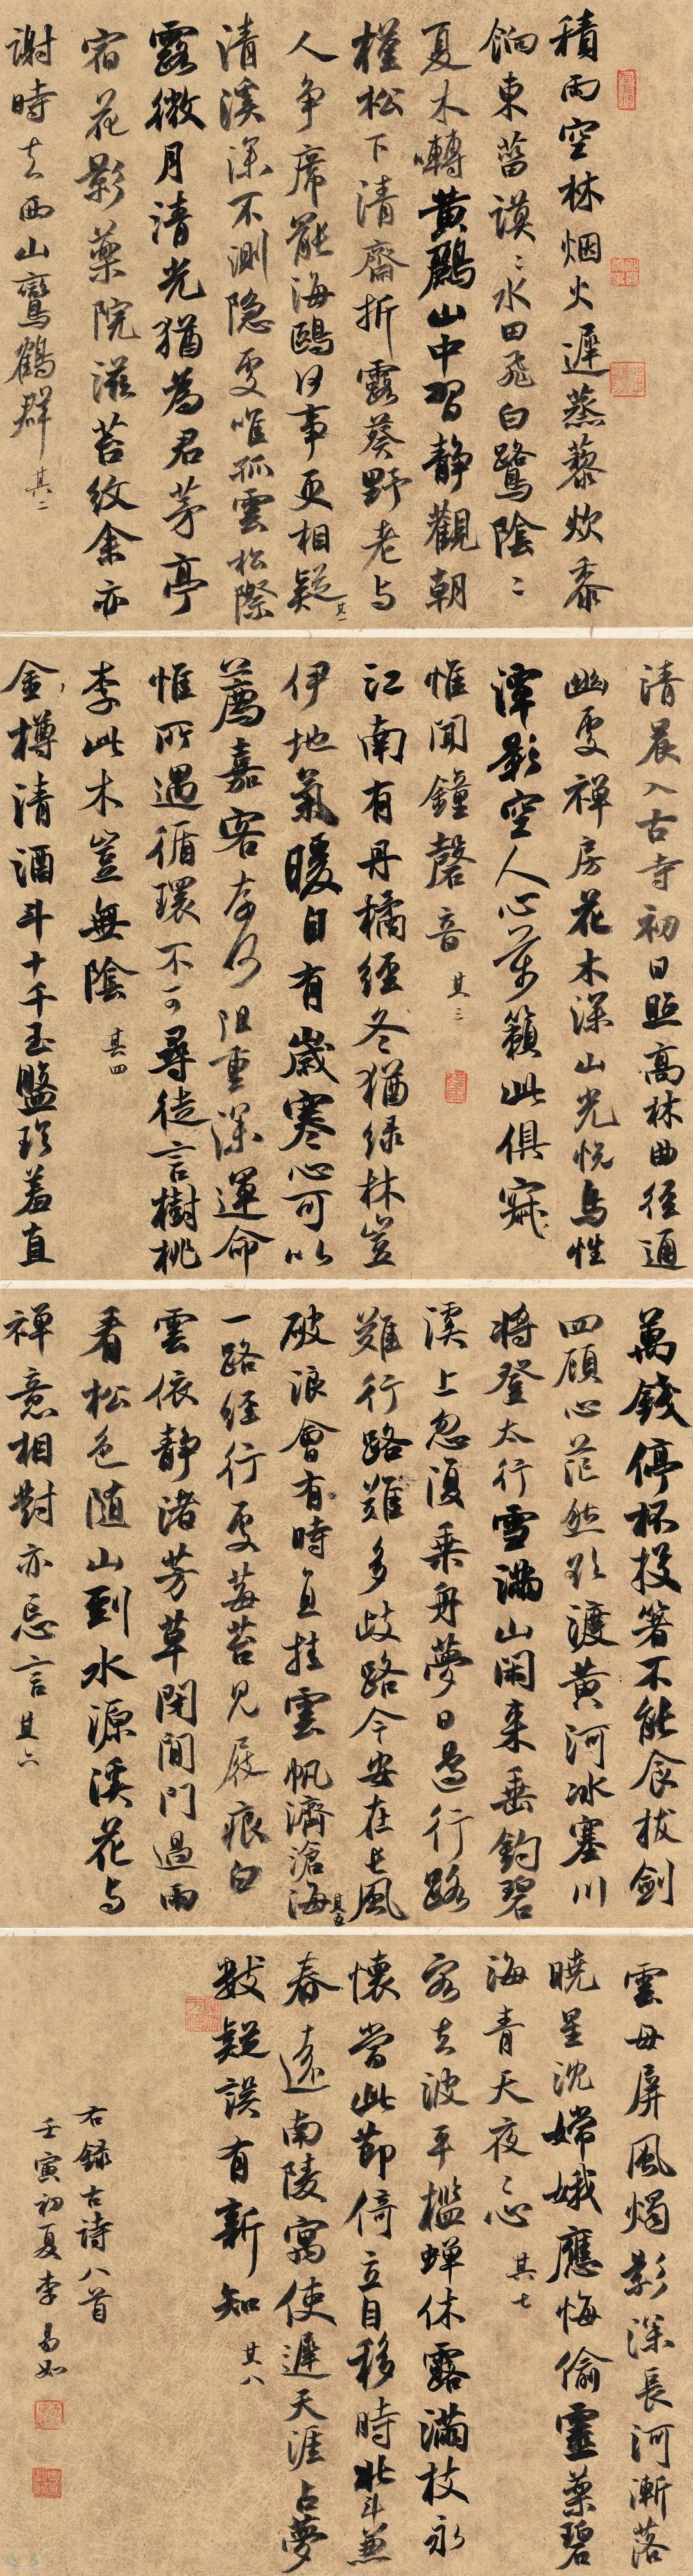 積雨空林烟火遲蒸藜炊黍
餉東菑漠〻水田飛白鷺陰〻
夏木囀黄鸝山中習静觀朝
槿松下清齋折露葵野老与
人争席罷海鷗何事更相疑其一
清溪深不測隐處唯孤雲松際
露微月清光猶為君茅亭
宿花影藥院滋苔紋余亦
謝時去西山鸞鶴群其二
清晨入古寺初日照高林曲徑通
幽處禅房花木深山光悦鳥性
潭影空人心萬籟此俱寂
惟聞鐘磬音其三
江南有丹橘經冬猶绿林豈
伊地氣暖自有歲寒心可以
薦嘉客奈何阻重深運命
惟所遇循環不可尋徒言樹桃
李此木豈無陰其四
金樽清酒斗十千玉盤珍羞直
萬錢停杯投箸不能食拔劍
四顧心茫然欲渡黄河冰塞川
将登太行雪满山閑来垂釣碧
溪上忽復乗舟夢日邊行路
難行路難多歧路今安在长風
破浪會有時直挂雲帆濟滄海其五
一路经行處莓苔見屐痕白
雲依静渚芳草閉閒門過雨
看松色随山到水源溪花与
禅意相對亦忘言其六
雲母屏風燭影深長河漸落
曉星沈嫦娥應悔偷靈藥碧
海青天夜〻心其七
客去波平檻蝉休露满枝永
懷當此節倚立自移時北斗兼
春遠南陵寓使遲天涯占夢
數疑誤有新知其八
右録古诗八首
壬寅初夏李易如